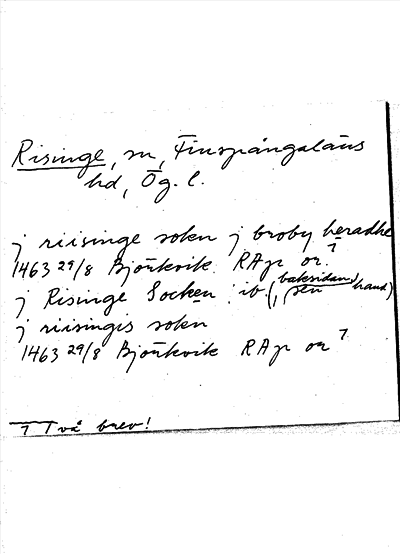 Risinge, sn, Finspångaläns
hd, Ög. l.
j riisinge sokn j broby heradhe
1463 29/8 Björkvik RAp or. 7
j Risinge Socken ib (baksidan, sen hand)
j riisingis sokn
1463 29/8 Björkvik RAp or 7
7 Två brev!